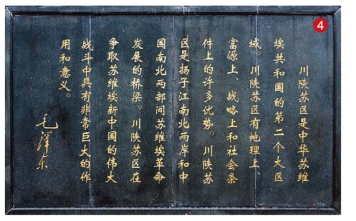 4
川陕苏区是中华苏维
埃共和国的第二个大区
域。川陕苏区有地理上、
富源上、战略上和社会条
件上的许多优势。川陕苏
区是扬子江南北两岸和中
国南北两部间苏维埃革命
发展的桥梁。川陕苏区在
争取苏维埃新中国的伟大
战斗中具有非常巨大的作
用和意义。
毛泽东